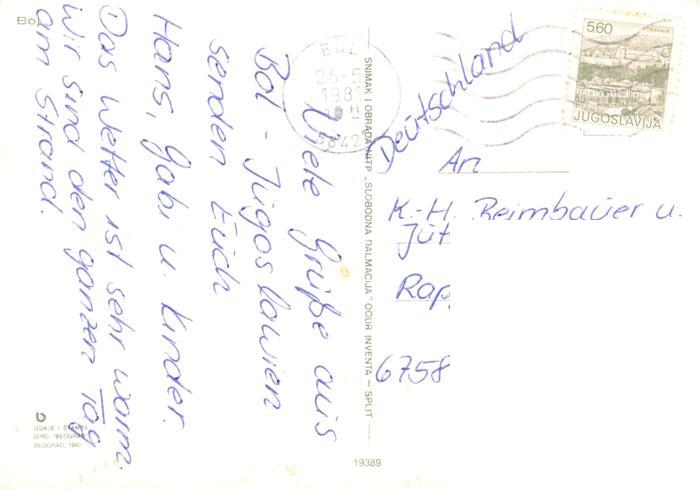 Bo
Viele Grüße aus
Bol - Jugoslawien
senden Euch
Hans, Gabi u. Kinder.
Das Wetter ist sehr warm.
Wir sind den ganzen Tag
am Strand.
IZDAJE I ŠTAMPA
GIRO "BEOGRAD"
BEOGRAD, 1980
SNIMAK I OBRADA NITP „SLOBODNA DALMACIJA" OOUR INVENTA — SPLIT
19389
BOL
26-5
1981
5842
5.60
TRAVNIK
JUGOSLAVIJA
Deutschland
An
K.-H. Reimbauer u.
Jut
Rap
6758